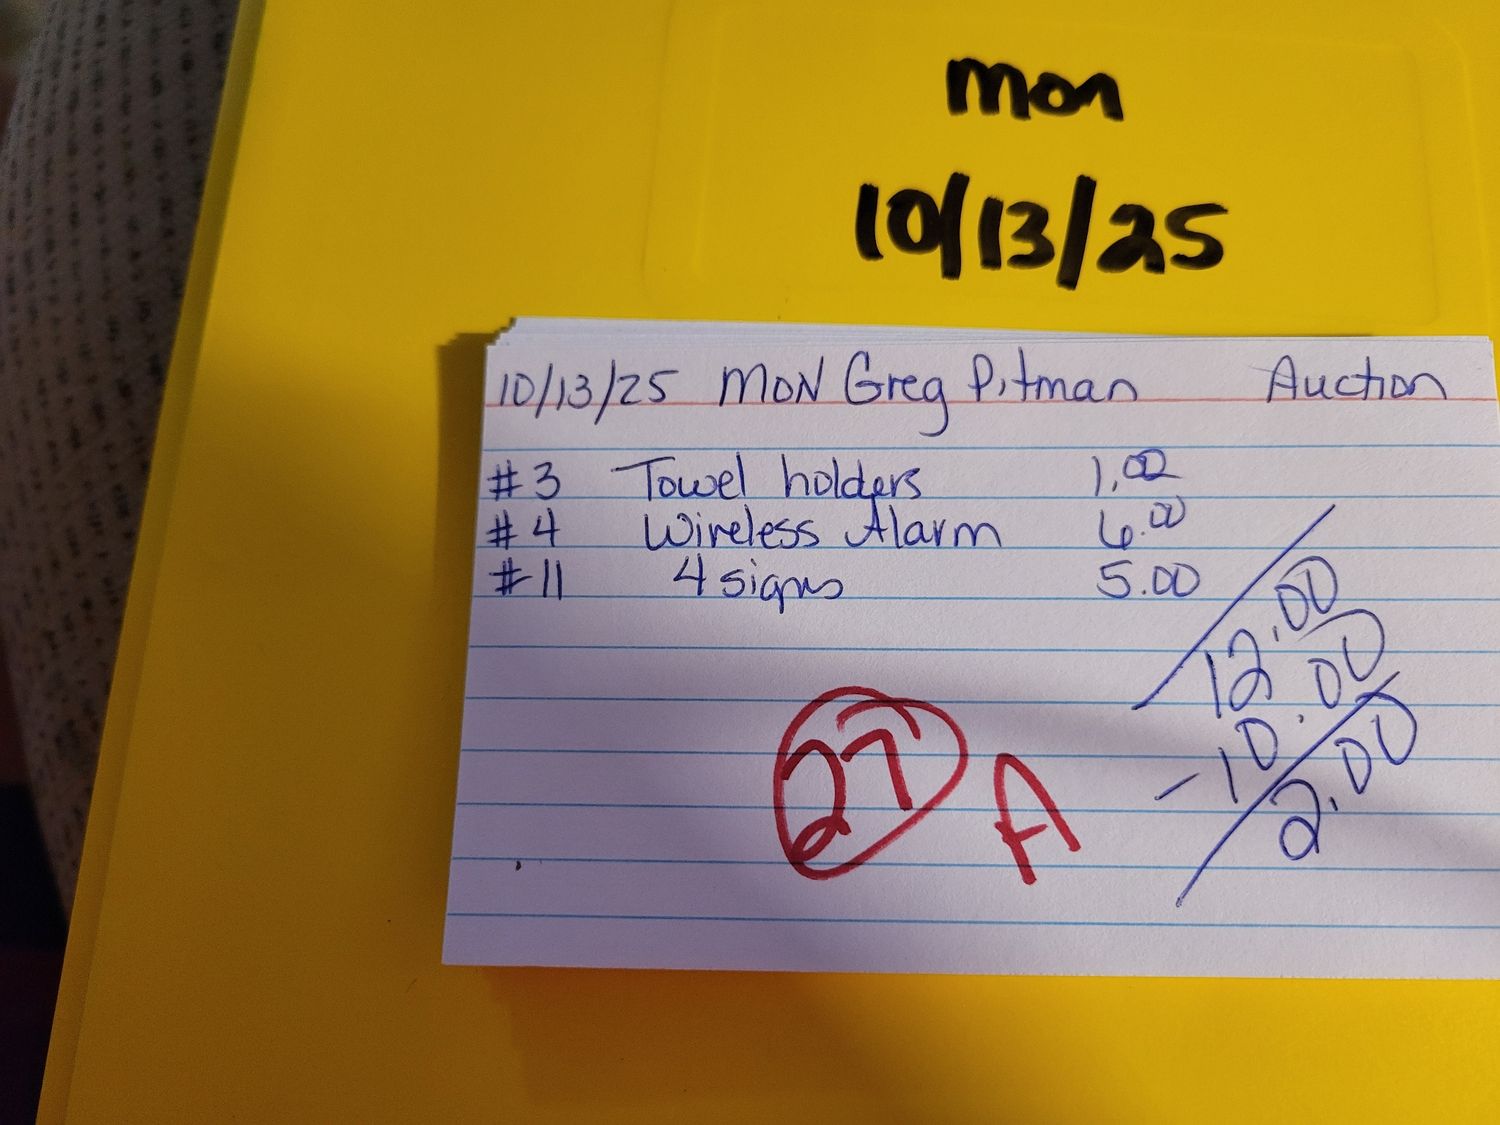 mon
10/13/25
10/13/25 MON Greg Pitman Auction
#3 Towel holders 1.00
#4 Wireless Alarm 6.00
#11 4 signs 5.00
12.00
-10.00
2.00
27 A